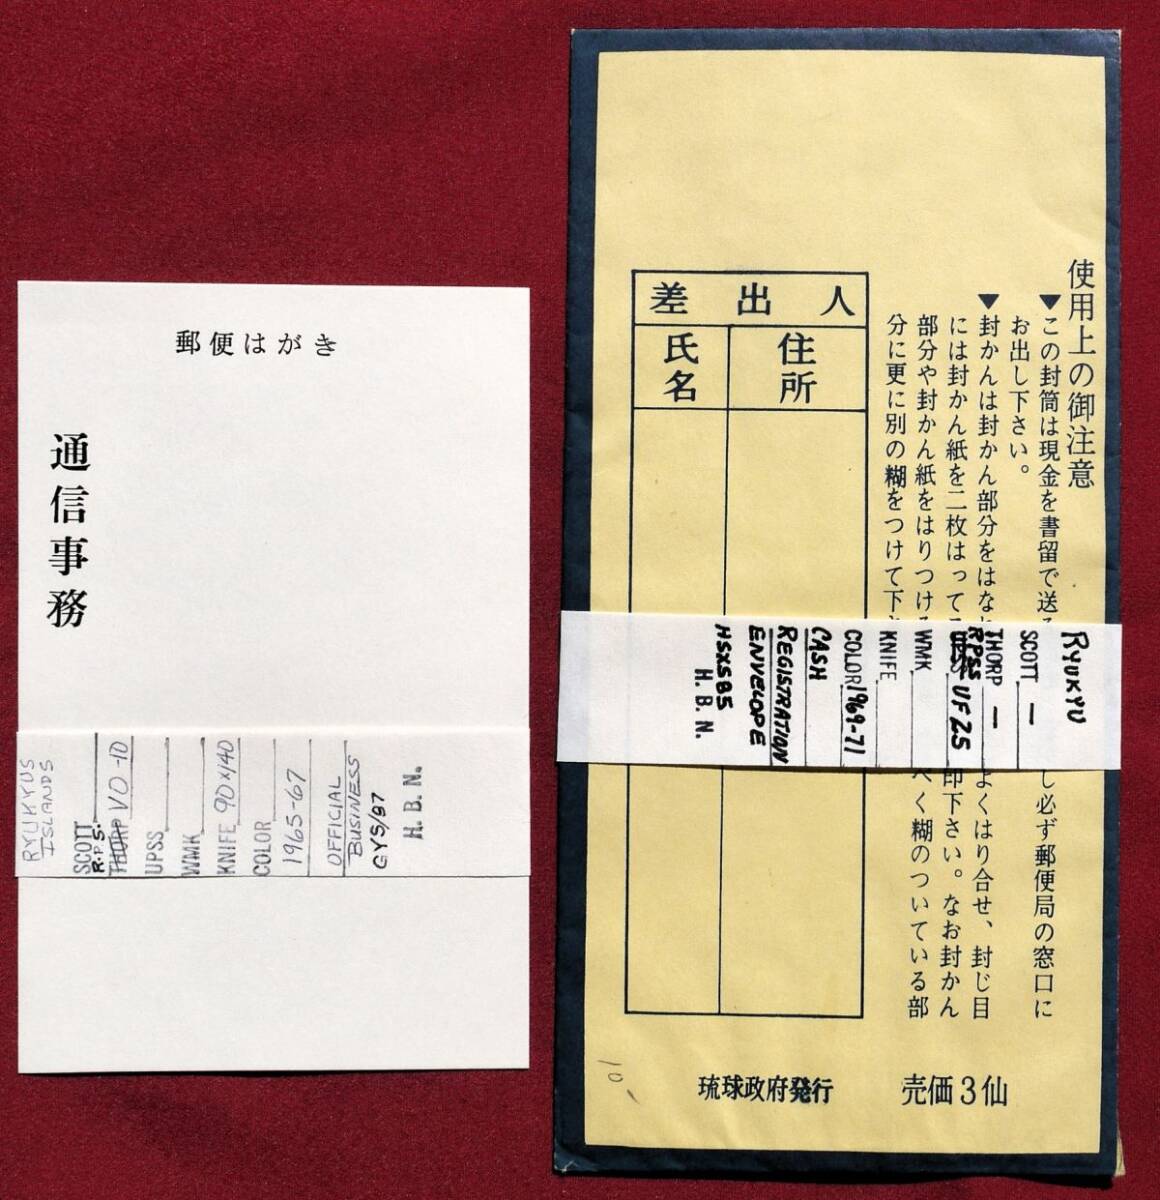 郵便はがき
通信事務
RYUKYUS
ISLANDS
SCOTT
R.P.S.
THORP VO-10
UPSS
WMK
KNIFE 90x140
COLOR
1965-67
OFFICIAL
BUSINESS
GYS/87
H. B. N.
使用上の御注意
▼この封筒は現金を書留で送る
し必ず郵便局の窓口に
お出し下さい。
▼封かんは封かん部分をはな
よくはり合せ、封じ目
には封かん紙を二枚はって
印下さい。なお封かん
部分や封かん紙をはりつける
べく糊のついている部
分に更に別の糊をつけて下さ
差出人
住所
氏名
RYUKYU
SCOTT —
THORP —
RPSS UF25
WMK
KNIFE
COLOR 1969-71
CASH
REGISTRATION
ENVELOPE
HSX585
H. B. N.
10
琉球政府発行
売価3仙